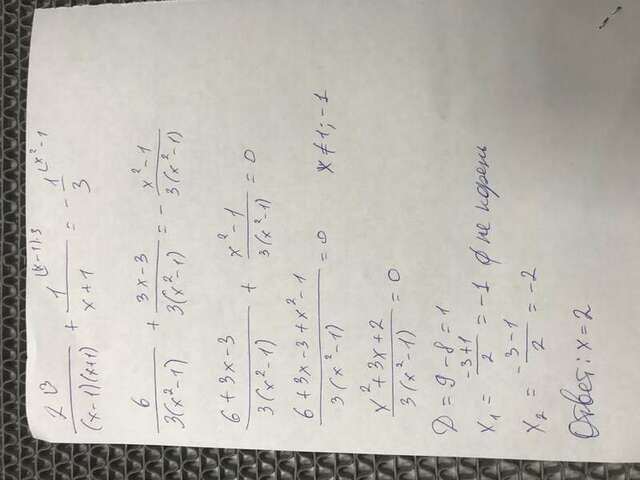 2 \3 / (x-1)(x+1) + 1 \(x-1)·3 / x+1 = - 1 \x²-1 / 3
6 / 3(x²-1) + 3x-3 / 3(x²-1) = - x²-1 / 3(x²-1)
6+3x-3 / 3(x²-1) + x²-1 / 3(x²-1) = 0
6+3x-3+x²-1 / 3(x²-1) = 0 x≠1;-1
x²+3x+2 / 3(x²-1) = 0
D = 9-8 = 1
x₁ = -3+1 / 2 = -1 ∅ не корень
x₂ = -3-1 / 2 = -2
Ответ: x=2